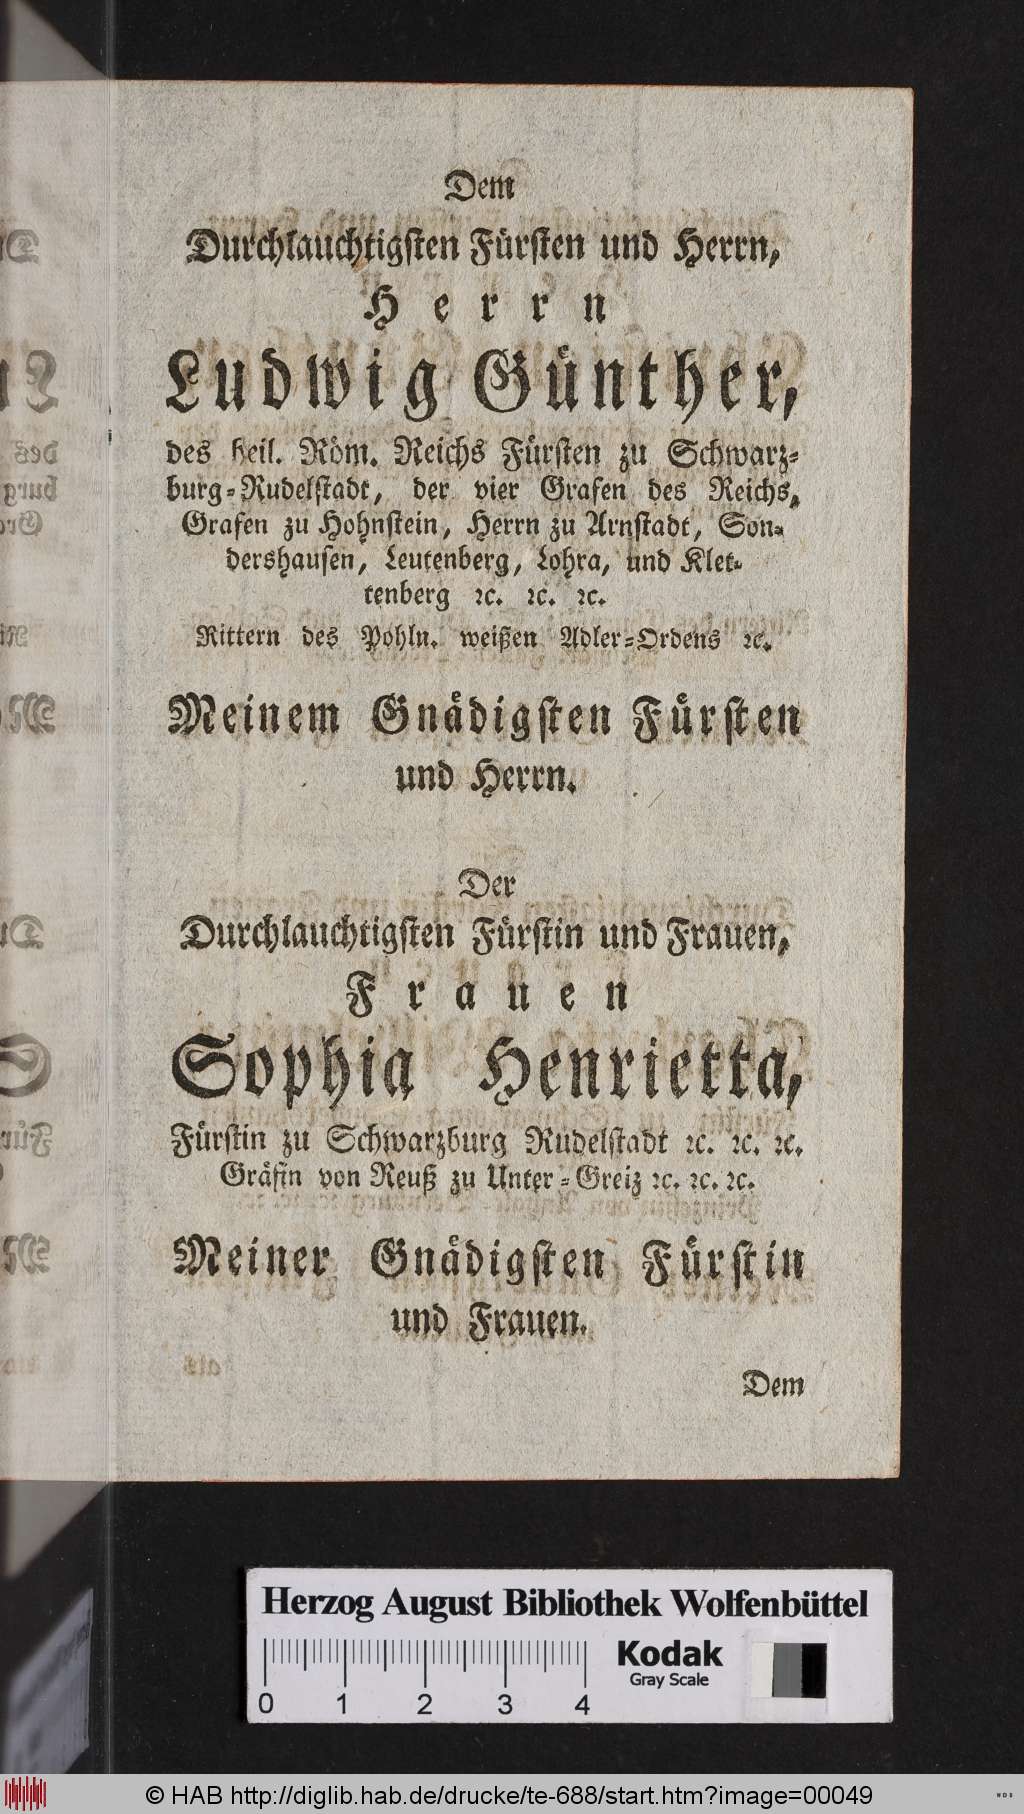 Dem
Durchlauchtigsten Fürsten und Herrn,
Herrn
Ludwig Günther,
des heil. Röm. Reichs Fürsten zu Schwarz-
burg-Rudelstadt, der vier Grafen des Reichs,
Grafen zu Hohnstein, Herrn zu Arnstadt, Son-
dershausen, Leutenberg, Lohra, und Klet-
tenberg ꝛc. ꝛc. ꝛc.
Rittern des Pohln. weißen Adler-Ordens ꝛc.
Meinem Gnädigsten Fürsten
und Herrn.
Der
Durchlauchtigsten Fürstin und Frauen,
Frauen
Sophia Henrietta,
Fürstin zu Schwarzburg Rudelstadt ꝛc. ꝛc. ꝛc.
Gräfin von Reuß zu Unter-Greiz ꝛc. ꝛc. ꝛc.
Meiner Gnädigsten Fürstin
und Frauen.
Dem
Herzog August Bibliothek Wolfenbüttel
Kodak
Gray Scale
0 1 2 3 4
© HAB http://diglib.hab.de/drucke/te-688/start.htm?image=00049